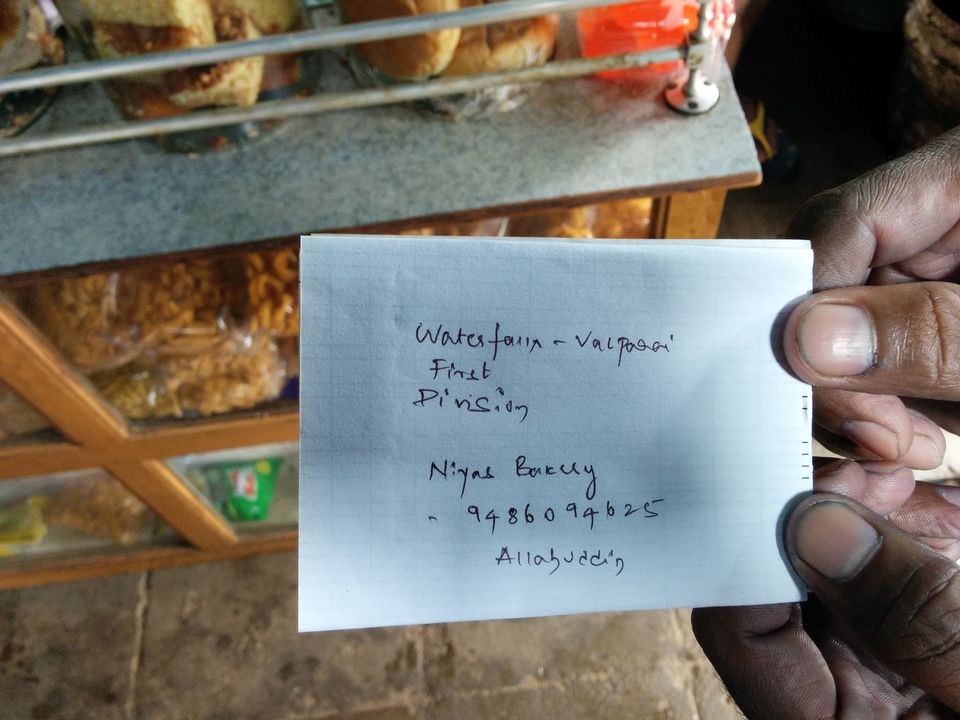 Waterfall - Valparai
First
Division
Niyas Bakery
- 9486094625
Allahuddin